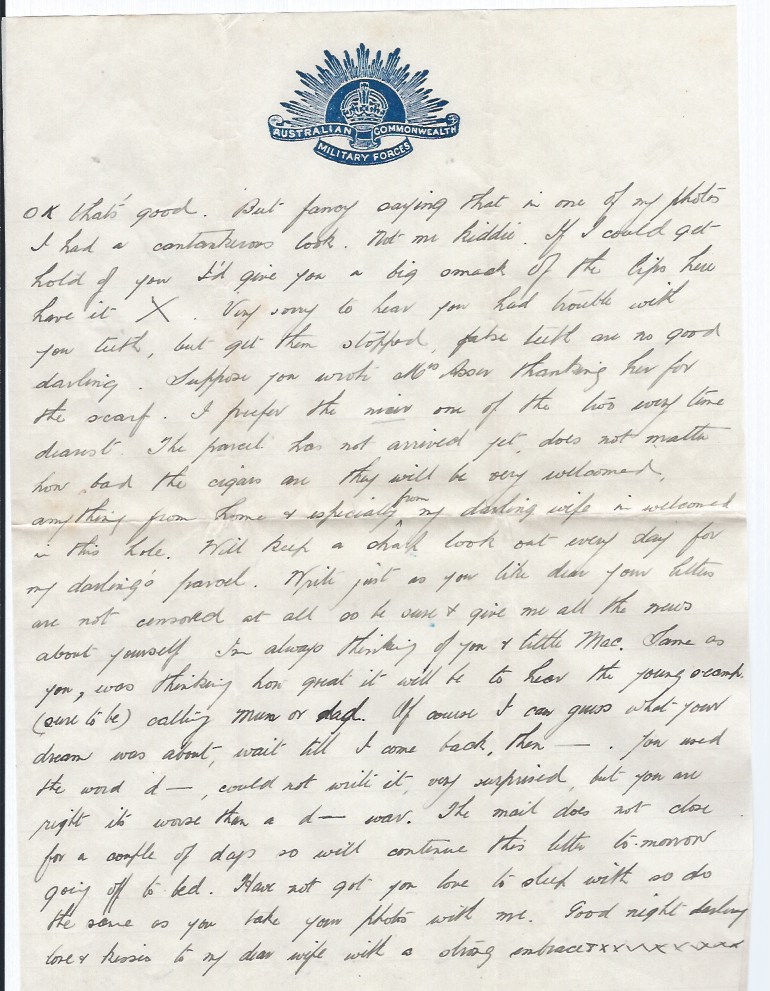 AUSTRALIAN COMMONWEALTH
MILITARY FORCES
OK that's good. But fancy saying that in one of my photos
I had a cantankerous look. Not me kiddie. If I could get
hold of you I'd give you a big smack of the lips here
have it X. Very sorry to hear you had trouble with
you teeth, but get them stopped, false teeth are no good
darling. Suppose you wrote Mrs Asser thanking her for
the scarf. I prefer the niver one of the two every time
dearest. The parcel has not arrived yet, does not matter
how bad the cigars are they will be very welcomed,
anything from home & especially from my darling wife is welcomed
in this hole. Will keep a sharp look out every day for
my darling's parcel. Write just as you like dear your letters
are not censored at all so be sure & give me all the news
about yourself I'm always thinking of you & little Mac. Same as
you, was thinking how great it will be to hear the young scamp
(sure to be) calling mum or dad. Of course I can guess what your
dream was about, wait till I come back, then — . You used
the word d—, could not write it, very surprised, but you are
right its worse than a d— war. The mail does not close
for a couple of days so will continue this letter to-morrow
going off to bed. Have not got you love to sleep with so do
the same as you take your photos with me. Good night darling
love & kisses to my dear wife with a strong embrace